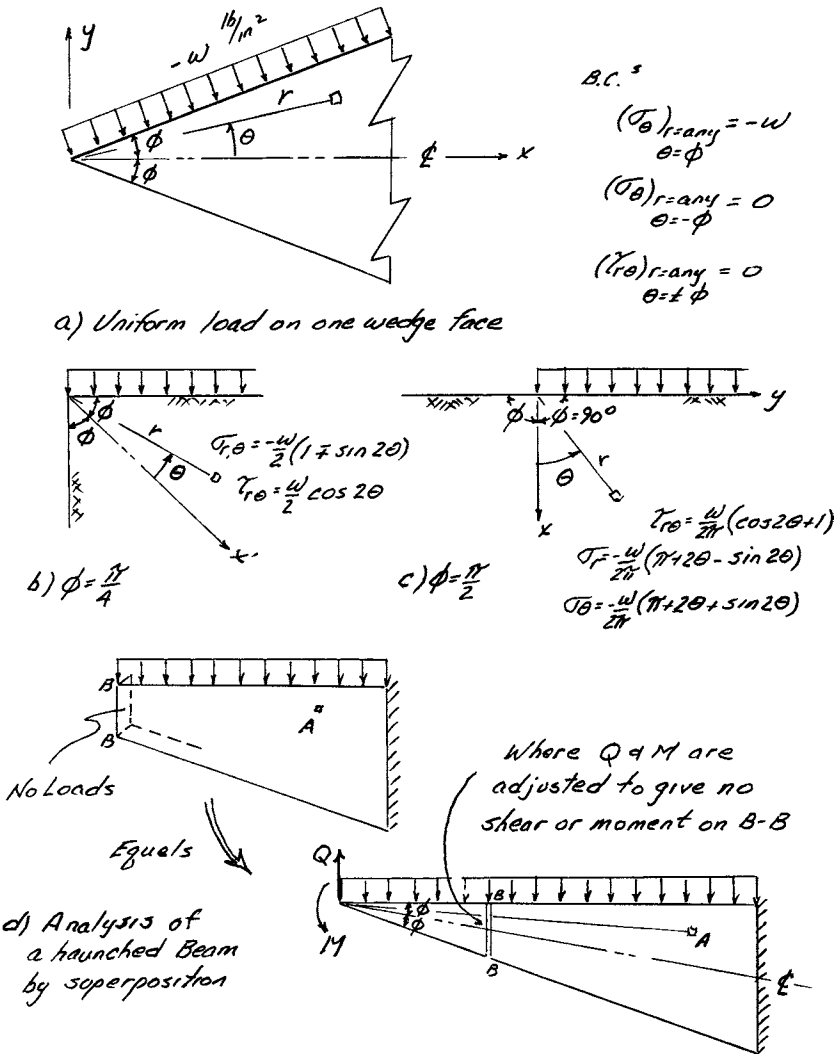 y
-w lb/in²
r
θ
ϕ
ϕ
℄
x
B.C.ˢ
(σθ)r=any θ=ϕ = -w
(σθ)r=any θ=-ϕ = 0
(τrθ)r=any θ=±ϕ = 0
a) Uniform load on one wedge face
ϕ
ϕ
r
θ
x
σr,θ = -w/2 (1 ∓ sin 2θ)
τrθ = w/2 cos 2θ
b) ϕ = π/4
ϕ
ϕ=90°
y
r
θ
x
τrθ = w/2π (cos2θ+1)
σr = -w/2π (π+2θ - sin 2θ)
σθ = -w/2π (π+2θ + sin 2θ)
c) ϕ = π/2
B
B
A
No Loads
Equals
Where Q & M are
adjusted to give no
shear or moment on B-B
Q
M
ϕ
ϕ
B
B
A
℄
d) Analysis of
a haunched Beam
by superposition